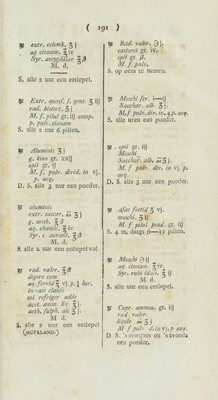 ( 291 )
℞ extr. colomb. ʒj
aq cinnam. ℥iv
Syr. ℥ß
M. d.
S. alle 2 uur een eetlepel.
℞ Extr. quass. s. gent. ʒij
rad. histort. ʒj
M. f. pilul. gr. iij consp.
p. pulv. cinnam
S. alle 2 uur 6 pillen.
℞ Aluminis ʒj
g. kino gr. xxij
opii gr. ij
M. f. pulv. divid. in vj.
p. aeq.
D. S. alle 3 uur een poeder.
℞ aluminis
extr. cascar. āā ʒj
g. arab. ℥ß
aq. cinnam. ℥iv
Syr. c. aurant. ℥ß
M. d.
S. alle 2 uur een eetlepel vol
℞ rad. valer. ℥ß
digere cum
aq. fervid ℥vj. p. ½ hor.
in vase clauso
col. refriger adde
aeth. sulph. alc ʒj
M. d.
S. alle 2 uur een eetlepel
(HUFELAND.)
℞ Rad. valer. ℈j
castorei gr. iv.
opii gr. ß.
M. f. pulv.
S. op eens te nemen.
℞ Moschi
Sacchar. alb. ʒj.
M. f. pulv. div. in 4 p. aeq.
S. alle uren een poeder.
℞ opii gr. iij
Moschi
Sacchar. alb. āā ʒj
M. f. pulv. div. in vj. p.
aeq.
D. S. alle 3 uur een poeder.
℞ asae foetid ʒvj
moschi. ʒij
M. f. pilul pond. gr. iij
S. 4 m. daags 6—12 pillen.
℞ Moschi ℈ij
aq cinnam. ℥iv.
Syr. rubi idaei. ℥ij
M. d.
S. alle uur een eetlepel.
℞ Cupr. ammon. gr. iij
rad valer.
M f pulv d. in vj. p aeq.
D S. 's morgens en 's avonds
een poeder.